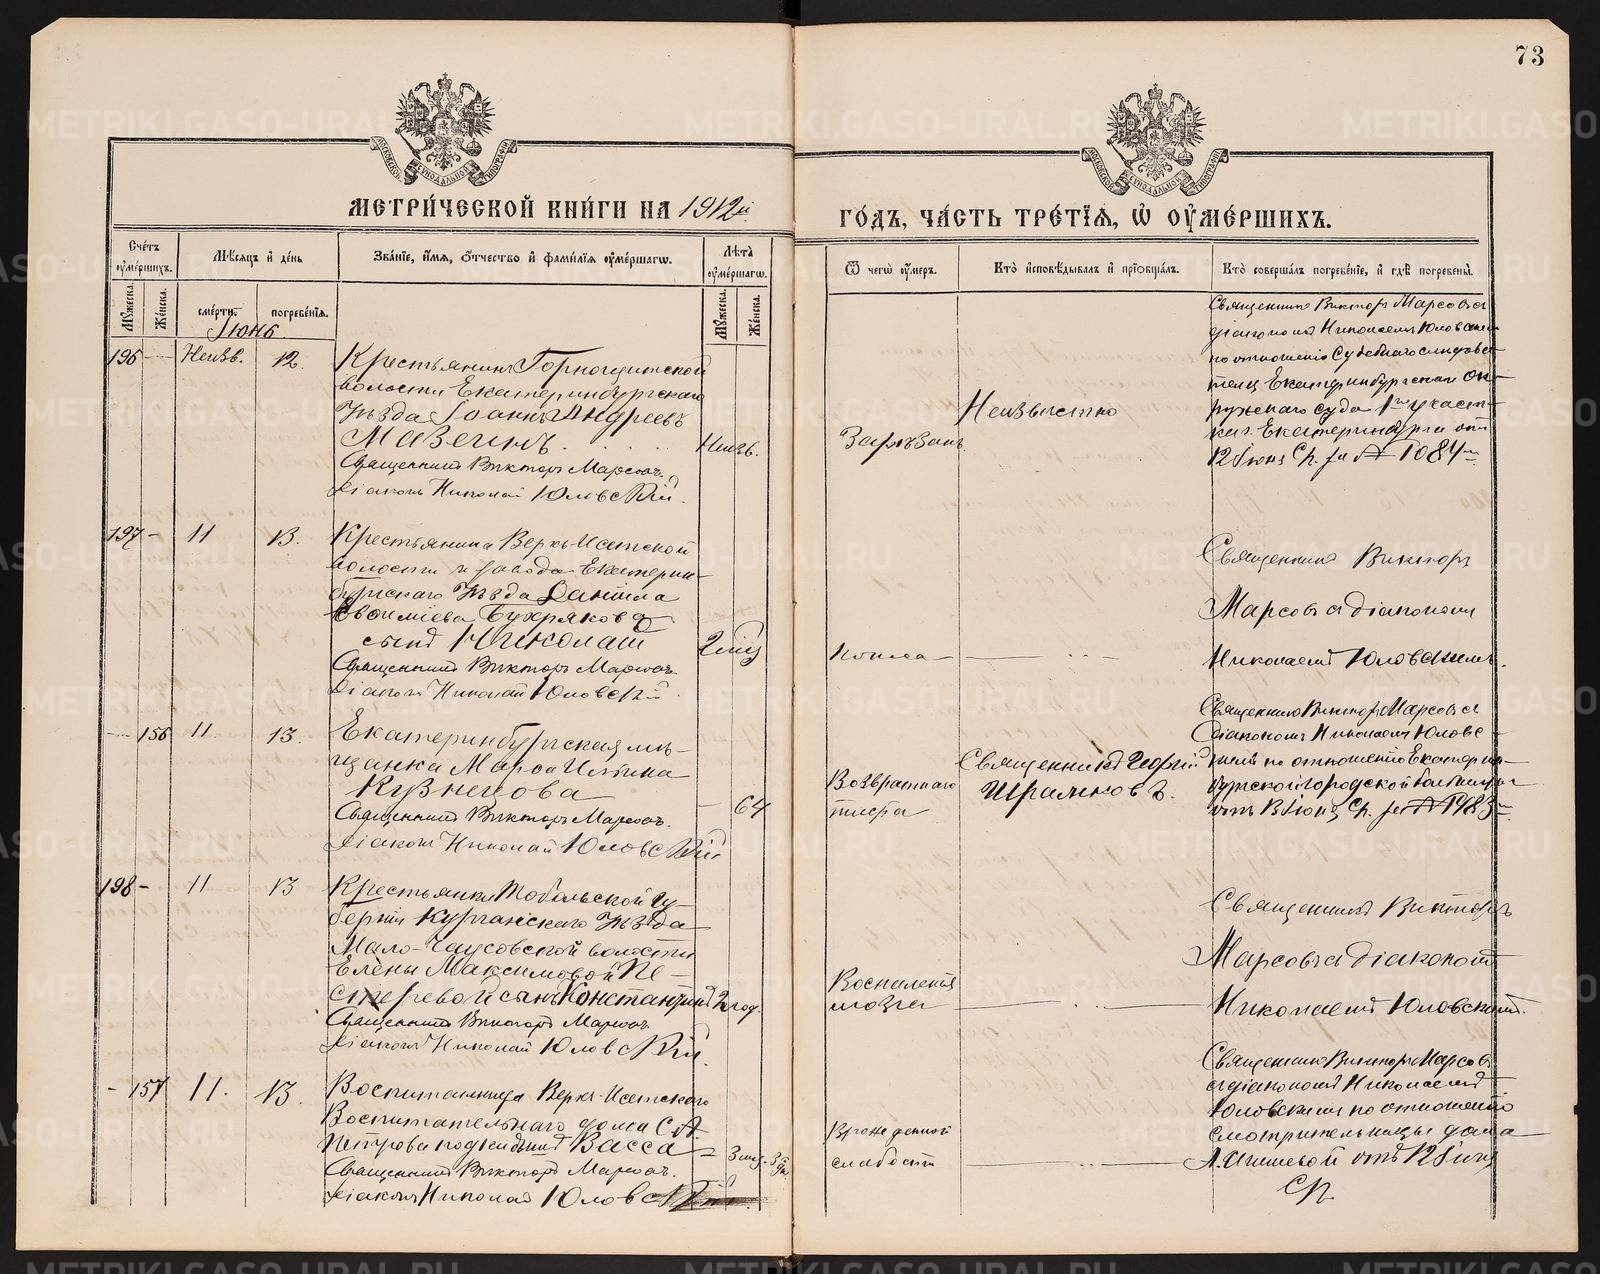 73
МЕТРИ́ЧЕСКОЙ КНИ́ГИ НА 1912й
ГО́ДЪ, ЧА́СТЬ ТРЕ́ТІѦ, Ѡ҆ ОУ҆МЕ́РШИХЪ.
Сче́тъ оу҆ме́ршихъ.
Мѣ́сяцъ и҆ де́нь
Зва́ніе, и҆́мѧ, ѻ҆́тчество и҆ фами́лїѧ оу҆ме́ршагѡ.
Лѣ̀та оу҆ме́ршагѡ.
Ѿ чегѡ̀ оу҆́меръ.
Кто̀ и҆сповѣ́дывалъ и҆ прїѡбща́лъ.
Кто̀ соверша́лъ погребе́нїе, и҆ гдѣ̀ погребены̀.
Му́жеска.
Же́нска.
сме́рти.
погребе́нїѧ.
Му́жеска.
Же́нска.
Іюнь
196 — Неизв. 12.
Крестьянинъ Горнощитской
волости Екатеринбургскаго
Уѣзда Іоаннъ Андреевъ
Мазеинъ
Неизв.
Священникъ Викторъ Марсовъ.
Діаконъ Николай Юловскій.
Зарѣзанъ
Неизвѣстно
Священникъ Викторъ Марсовъ съ
діакономъ Николаемъ Юловским
по отношенію Судебнаго слѣдова
теля Екатеринбургскаго Ок-
ружнаго Суда 1го участ-
ка г. Екатеринбурга отъ
12 Іюня с/г. за № 1084
197 - 11 13.
Крестьянина Верхъ-Исетской
волости и завода Екатерин-
бургскаго Уѣзда Даніила
Евѳиміева Бухрякова
сынъ Николай
Священникъ Викторъ Марсовъ.
Діаконъ Николай Юловскій.
Священникъ Викторъ
Марсовъ съ діакономъ
Николаемъ Юловскимъ.
— 156 11 13.
Екатеринбургская мѣ-
щанка Марѳа Ильина
Кузнецова
— 64
Священникъ Викторъ Марсовъ.
Діаконъ Николай Юловскій
Возвратнаго
тифа
Священникъ Георгій
Священникъ Викторъ Марсовъ съ
діакономъ Николаемъ Юловс-
кимъ по отношенію Екатерин-
бургской городской больницы
отъ 13 Іюня с/г. за № 1983
198 - 11 13
Крестьянки Тобольской Гу-
берніи Курганскаго Уѣзда
Мало-Чаусовской волости
Елены Максимовой Пе-
стеревой сынъ Константинъ
2 год.
Священникъ Викторъ Марсовъ
Діаконъ Николай Юловскій.
Воспаленія
мозга
Священникъ Викторъ
Марсовъ съ діакономъ
Николаемъ Юловскимъ.
- 157 11. 13.
Воспитанница Верхъ-Исетскаго
Воспитательнаго дома С. А.
Петрова подкидышъ Васса
Священникъ Викторъ Марсовъ.
Діаконъ Николай Юловскій
Врожденной
слабости
Священникъ Викторъ Марсовъ
съ діакономъ Николаемъ
Юловскимъ по отношенію
смотрительницы дома
отъ 12 Іюня
с/г.
METRIKI.GASO-URAL.RU